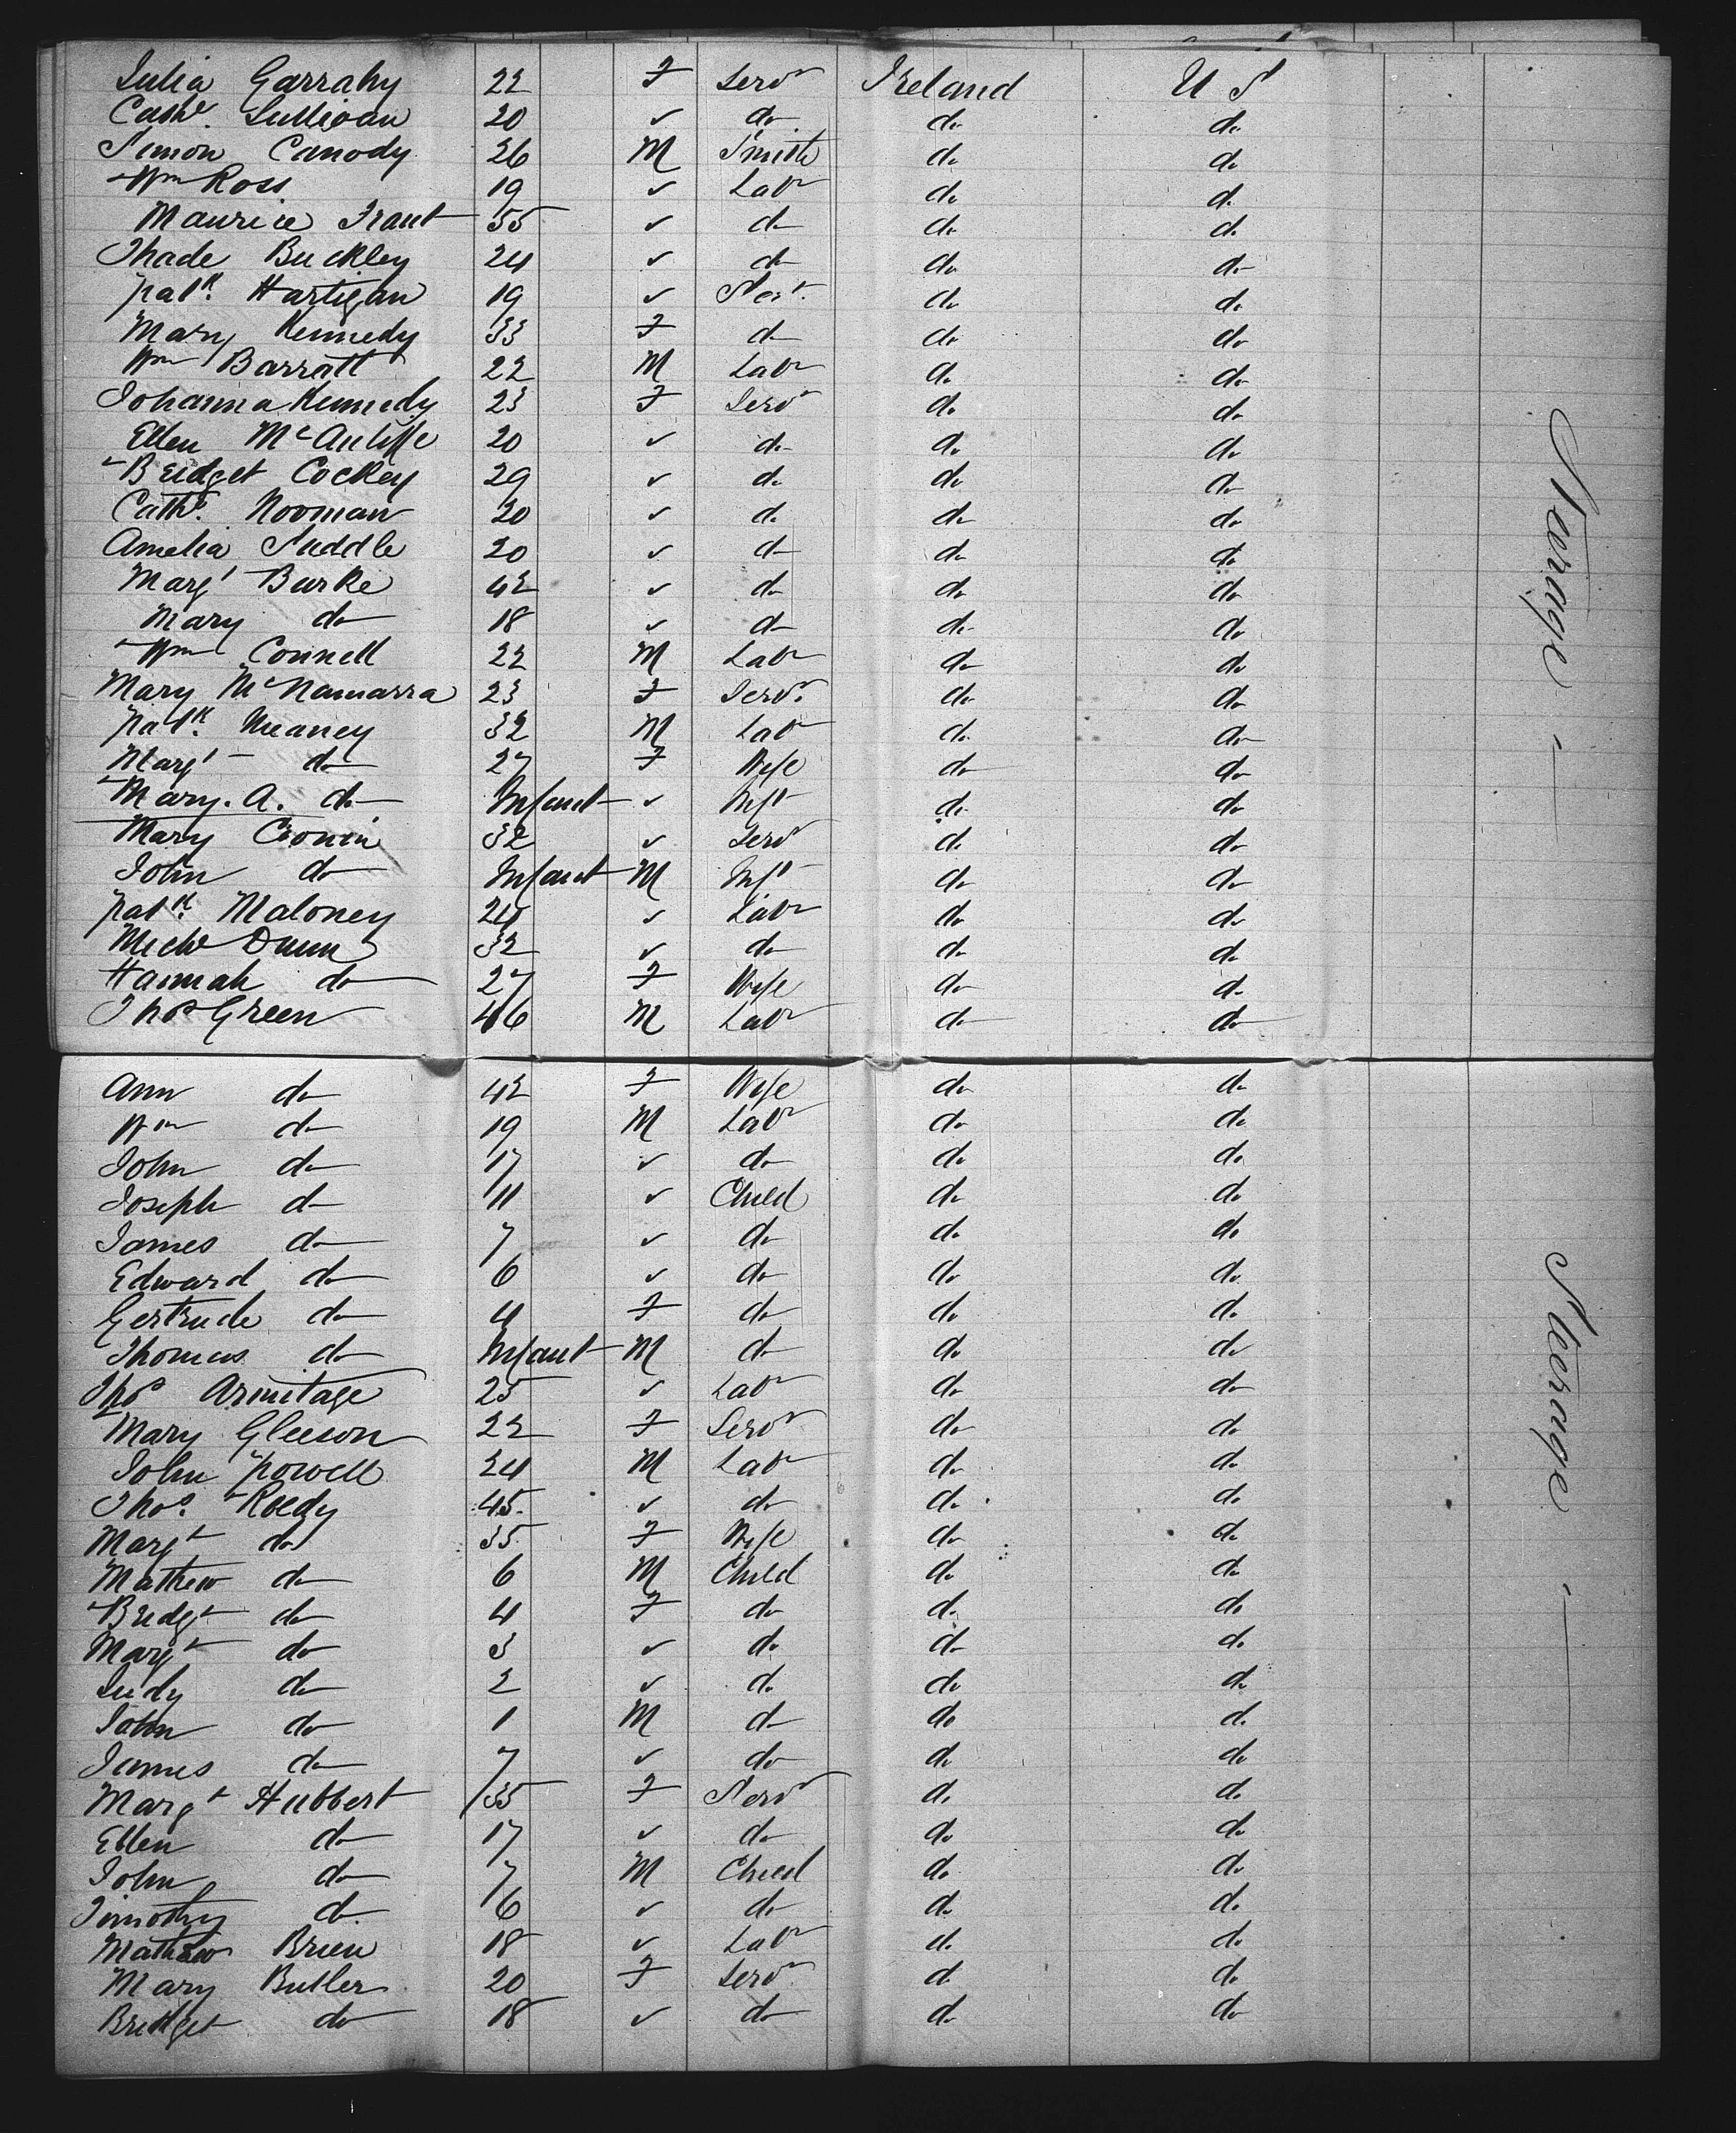 Julia Garrahy 22 F Servt Ireland U S
Cathe. Sullivan 20 ✓ do do do
Simon Canody 26 M Smith do do
Wm Ross 19 ✓ Labr do do
Maurice Trant 55 ✓ do do do
Thade Buckley 24 ✓ do do do
Patk. Hartigan 19 ✓ Servt. do do
Mary Kennedy 33 F do do do
Wm Barratt 22 M Labr do do
Johanna Kennedy 23 F Servt do do
Ellen McAuliffe 20 ✓ do do do
Bridget Cockey 29 ✓ do do do
Cathe. Noonan 20 ✓ do do do
Amelia Suddle 20 ✓ do do do
Margt Burke 42 ✓ do do do
Mary do 18 ✓ do do do
Wm Connell 22 M Labr do do
Mary McNamarra 23 F Servt. do do
Patk. Meaney 32 M Labr do do
Margt do 27 F Wife do do
Mary. A. do Infant ✓ Inft do do
Mary Cronin 32 ✓ Servt do do
John do Infant M Inft do do
Patk. Maloney 24 ✓ Labr do do
Michl Dunn 32 ✓ do do do
Hannah do 27 F Wife do do
Thos Green 46 M Labr do do
Steerage
Ann do 42 F Wife do do
Wm do 19 M Labr do do
John do 17 ✓ do do do
Joseph do 11 ✓ Child do do
James do 7 ✓ do do do
Edward do 6 ✓ do do do
Gertrude do 4 F do do do
Thomas do Infant M do do do
Thos Armitage 25 ✓ Labr do do
Mary Gleeson 22 F Servt do do
John Powell 24 M Labr do do
Thos. Reedy 45 ✓ do do do
Margt do 35 F Wife do do
Mathew do 6 M Child do do
Bridgt do 4 F do do do
Margt do 3 ✓ do do do
Judy do 2 ✓ do do do
John do 1 M do do do
James do 7 ✓ do do do
Margt Hubbert 35 F Servt do do
Ellen do 17 ✓ do do do
John do 7 M Child do do
Timothy do 6 ✓ do do do
Mathew Brien 18 ✓ Labr do do
Mary Butler 20 F Servt do do
Bridget do 18 ✓ do do do
Steerage